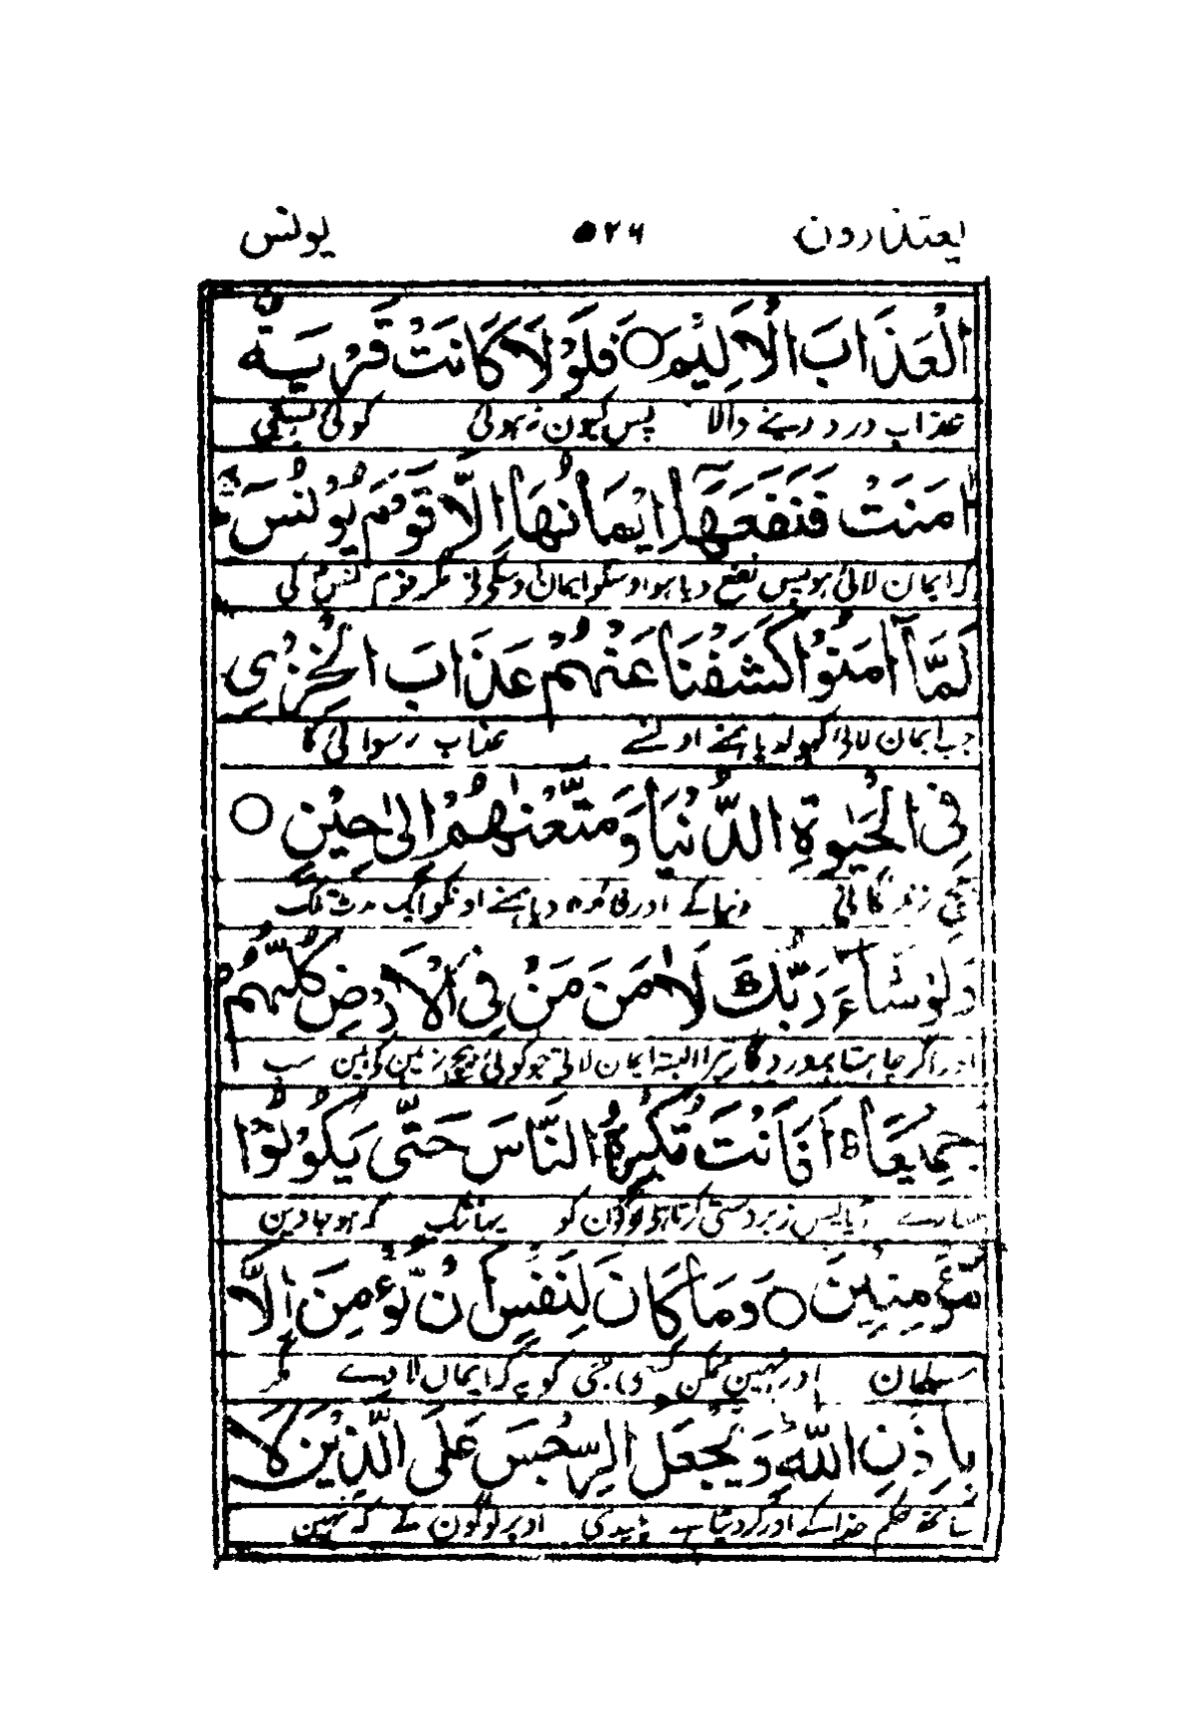 یعتذرون ۵۲۶ یونس
الْعَذَابَ الْاَلِيْمَ ○ فَلَوْلَا كَانَتْ قَرْيَةٌ
عذاب درد دینے والا پس کیون نہوئی کوئی بستی
اٰمَنَتْ فَنَفَعَهَاۤ اِيْمَانُهَاۤ اِلَّا قَوْمَ يُوْنُسَ
کہ ایمان لائی ہو پس نفع دیا ہو اوسکو ایمان اوسکے نے مگر قوم یونس کی
لَمَّاۤ اٰمَنُوْا كَشَفْنَا عَنْهُمْ عَذَابَ الْخِزْيِ
جب ایمان لائی کھولدیا ہمنے اونسے عذاب رسوائی کا
فِى الْحَيٰوةِ الدُّنْيَا وَمَتَّعْنٰهُمْ اِلٰى حِيْنٍ ○
بیچ زندگانی دنیا کے اور فائدہ دیا ہمنے اونکو ایک مدت تلک
وَلَوْ شَآءَ رَبُّكَ لَاٰمَنَ مَنْ فِى الْاَرْضِ كُلُّهُمْ
اور اگر چاہتا پروردگار تیرا البتہ ایمان لاتی جو کوئی بیچ زمین کی ہین سب
جَمِيْعًا ؕ اَفَاَنْتَ تُكْرِهُ النَّاسَ حَتّٰى يَكُوْنُوْا
سارے کیا پس زبردستی کرتا ہے تو لوگون کو یہانتک کہ ہوجاوین
مُؤْمِنِيْنَ ○ وَمَا كَانَ لِنَفْسٍ اَنْ تُؤْمِنَ اِلَّا
مسلمان اور نہین ممکن کسی جی کو یہ کہ ایمان لاوے مگر
بِاِذْنِ اللّٰهِ ؕ وَيَجْعَلُ الرِّجْسَ عَلَى الَّذِيْنَ لَا
ساتھ حکم خدا کے اور کر دیتا ہے پلیدی اوپر لوگون کے کہ نہین